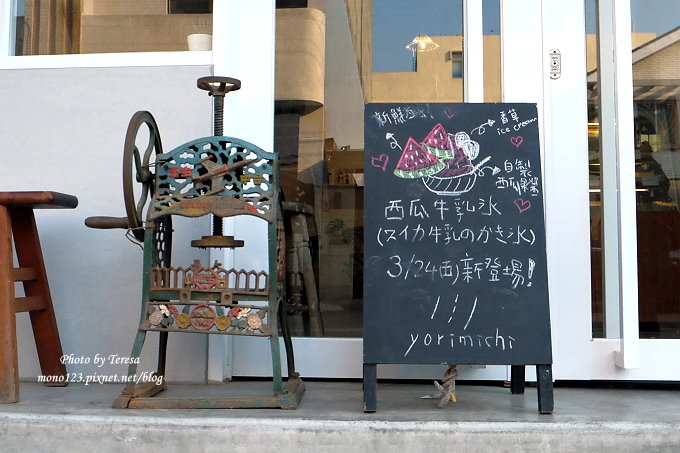 香草
ice cream
自製
西瓜牛乳氷
(スイカ牛乳のかき氷)
3/24(西)新登場!
yorimichi
Photo by Teresa
mono123.pixnet.net/blog